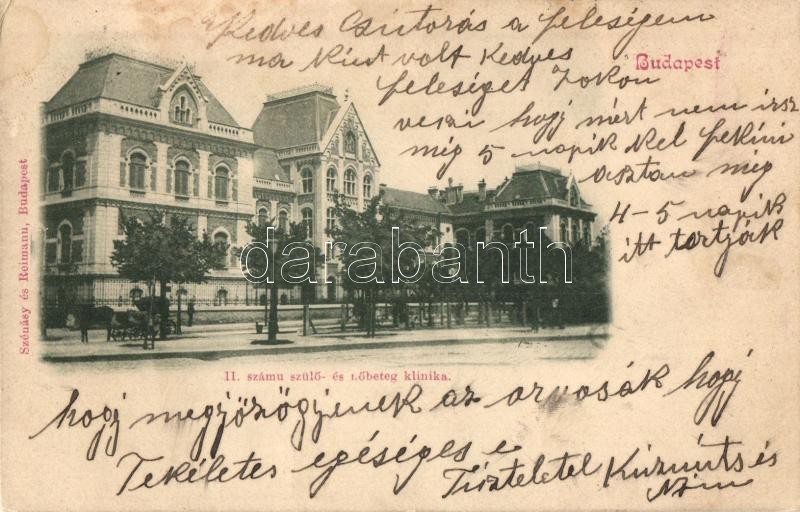 Kedves Csutorás a feleségem
ma kint volt kedves
Budapest
feleséget zokon
veszi hogj mért nem irsz
még 5 napik kel fekini
asztán még
4-5 napik
itt tartják
Szénásy és Reimann, Budapest
darabanth
II. számu szülő- és nőbeteg klinika.
hogj megyőzögjenek az orvosák hogj
Tekéletes egéséges e
Tisztelettel